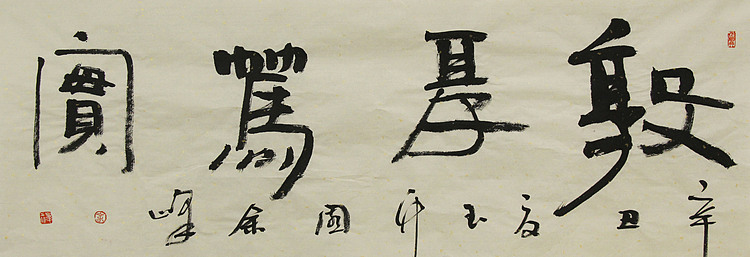 敦厚篤實
辛丑夏玉余峰